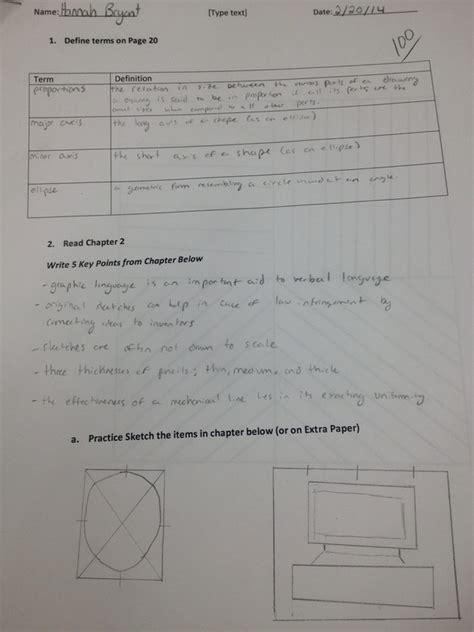 Name: Hannah Bryant [Type text] Date: 2/20/14
100
1. Define terms on Page 20
Term Definition
proportions the relation in size between the various parts of a drawing
a drawing is said to be in proportion if all its parts are the
size when compared to all other parts.
major axis the long axis of a shape (as an ellipse)
minor axis the short axis of a shape (as an ellipse)
ellipse a geometric form resembling a circle at an angle.
2. Read Chapter 2
Write 5 Key Points from Chapter Below
- graphic language is an important aid to verbal language
- original sketches can help in case of law infringement by
connecting ideas to inventors
- sketches are often not drawn to scale
- three thicknesses of pencils; thin, medium, and thick
- the effectiveness of a mechanical line lies in its exacting uniformity
a. Practice Sketch the items in chapter below (or on Extra Paper)